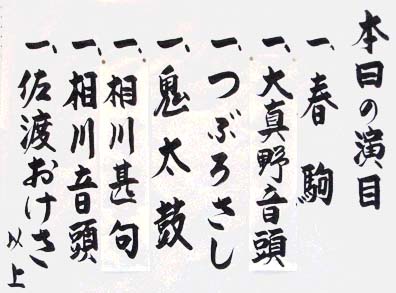 本日の演目
一、春駒
一、大真野音頭
一、つぶろさし
一、鬼太鼓
一、相川甚句
一、相川音頭
一、佐渡おけさ
以上